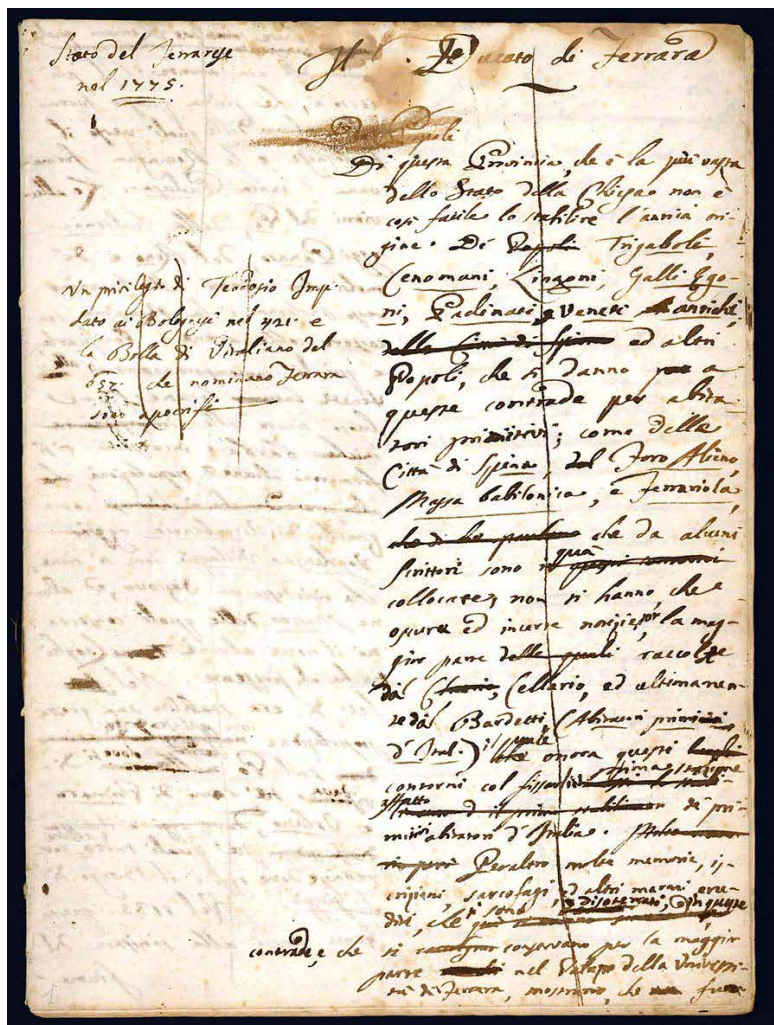 Stato del Ferrarese
nel 1775.
Il Ducato di Ferrara
Di questa Provincia, che è la più vasta
dello Stato della Chiesa non è
così facile lo stabilire l'antica ori-
gine. De Popoli Trigaboli,
Cenomani, Lingoni, Galli Ego-
ni, Padinati, e Veneti antichi,
ed altri
Popoli, che si danno a
queste contrade per abita-
tori primitivi; come della
Città di Spina, Foro Alieno,
Massa babilonica, e Ferrariola
che da alcuni
Scrittori sono quà
collocate, non si hanno che
oscure ed incerte notizie, per la mag-
gior parte delle quali raccolte
dal Cluerio, Cellario, ed ultimamen-
te dal Bardetti (Abitatori primitivi
d'Ital.) il quale onora questi
contorni col
affatto de pri-
mitivi abitatori d'Italia.
Peraltro molte memorie, is-
crizioni, sarcofagi ed altri marmi eru-
diti, che si sono disoterrati, in queste
contrade, e che si conservano per la maggior
parte nel Palazzo della Universi-
tà di Ferrara, mostrano, che
Un privilegio di Teodosio Imp.
dato ai Bolognesi nel 421. e
la Bolla di Vitaliano del
657. che nominano Ferrara
sono apocrifi